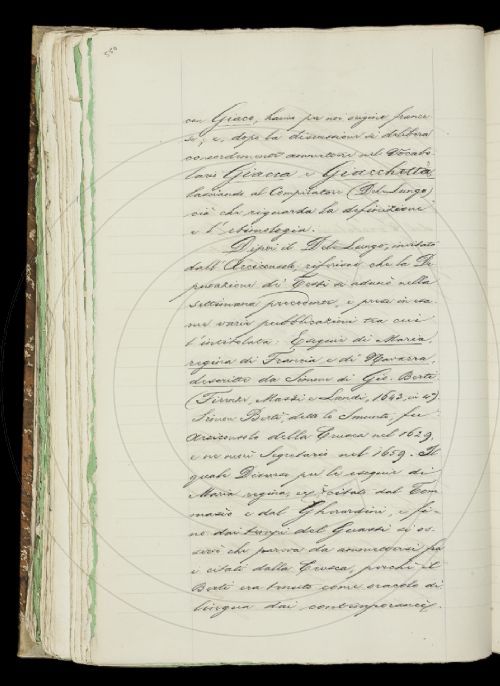 con Giaco, hanno per noi origine france-
se; e, dopo la discussione si delibera
concordemente ammettere nel Vocabo-
lario Giacca e Giacchetta,
lasciando al Compilatore (Del Lungo)
ciò che riguarda la definizione
e l'etimologia.
Dipoi il Del Lungo, invitato
dall'Arciconsolo, riferisce che la De-
putazione dei Testi si adunò nella
settimana precedente, e prese in esa-
me varie pubblicazioni tra cui
l'intitolata: Esequie di Maria
regina di Francia e di Navarra,
descritte da Simone di Gio. Berti
(Firenze, Massi e Landi, 1643, in 4º).
Simone Berti, detto lo Smunto, fu
Arciconsolo della Crusca nel 1629,
e ne morì Segretario nel 1659. Il
quale Discorso per le esequie di
Maria regina, è citato dal Tom-
maseo e dal Gherardini, e fi-
no dai tempi del Guasti si os-
servò che pareva da ammettersi fra
i citati dalla Crusca, perchè il
Berti era tenuto come oracolo di
lingua dai contemporanei.